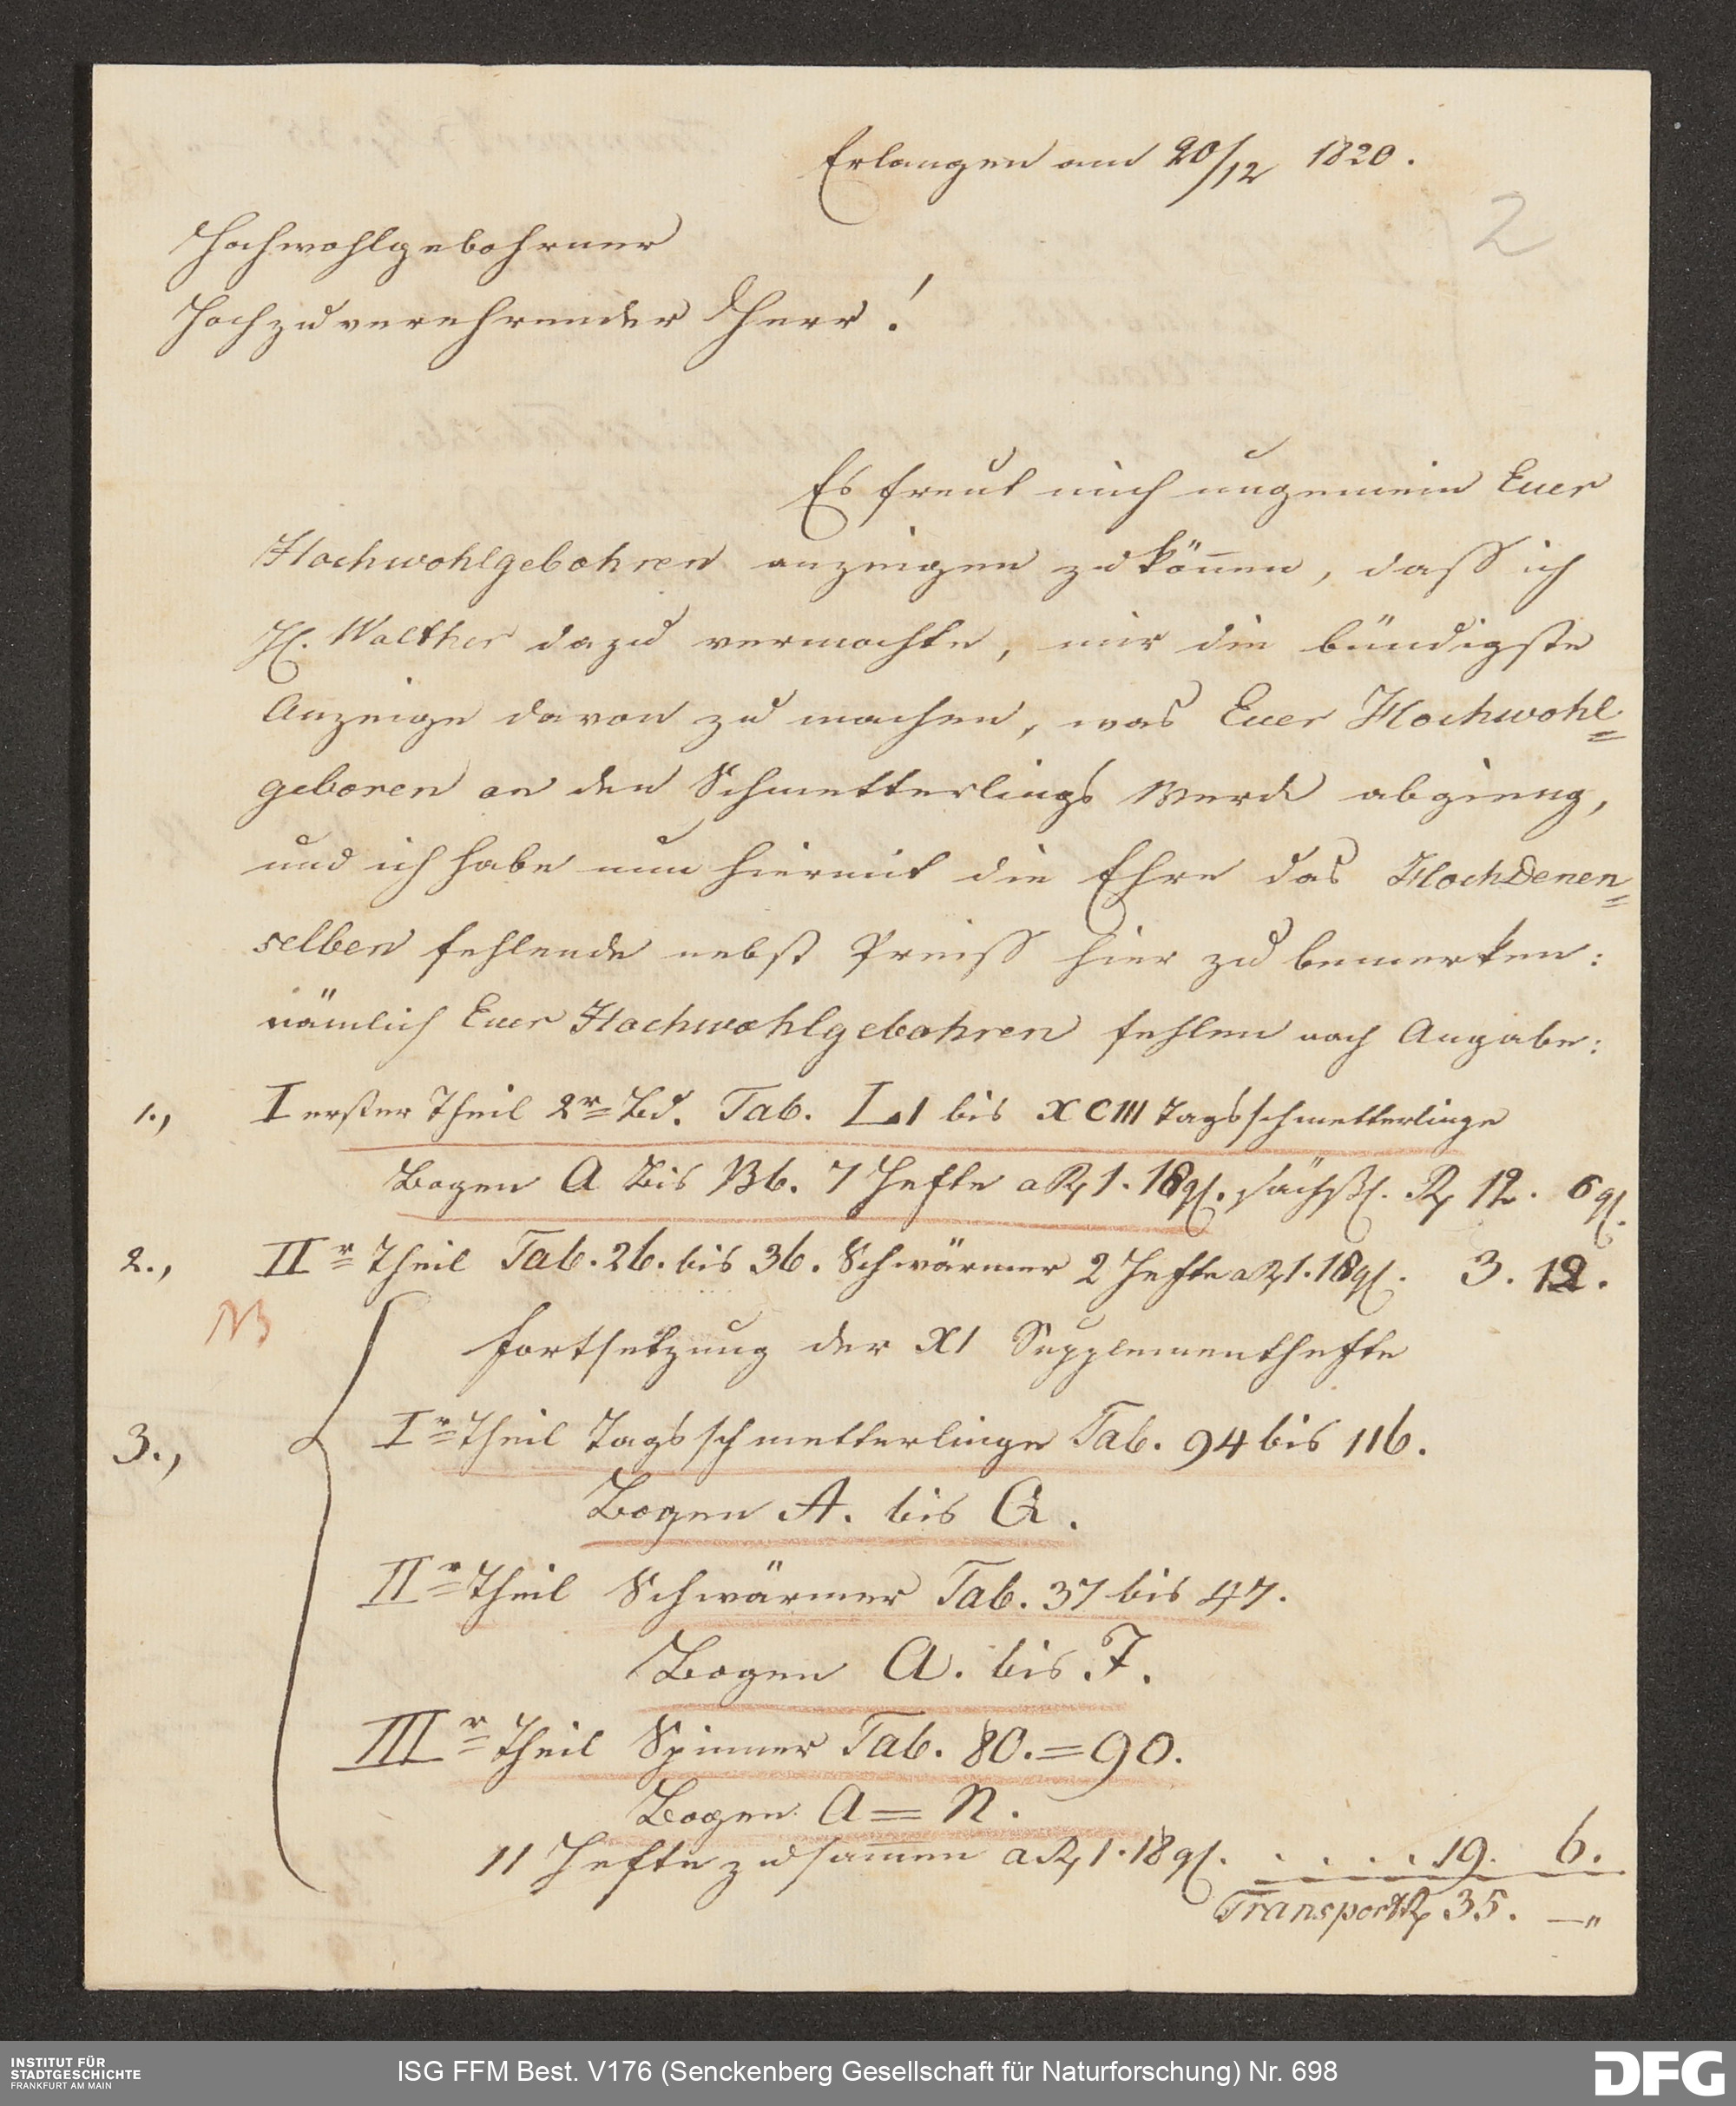 Erlangen am 20/12 1820.
2
Hochwohlgebohrner
Hochzuverehrender Herr!
Es freut mich ungemein Euer
Hochwohlgebohren anzeigen zu können, dass ich
H. Walther dazu vermochte, mir die bündigste
Anzeige davon zu machen, was Euer Hochwohl=
geboren an den Schmetterlings Werck abgieng,
und ich habe nun hiermit die Ehre das HochDenen=
selben fehlende nebst Preiss hier zu bemerken:
nämlich Euer Hochwohlgebohren fehlen nach Angabe:
1., I erster Theil 2r Bd. Tab. LI bis XCIII Tagsschmetterlinge
Bogen A bis Bb. 7 Hefte a Rh 1. 18 gl. sächssl. Rh 12. 6 gl.
2., IIr Theil Tab. 26. bis 36. Schwärmer 2 Hefte a Rh 1. 18 gl. 3. 12.
NB
Fortsetzung der XI Supplementhefte
3., Ir Theil Tagsschmetterlinge Tab. 94 bis 116.
Bogen A. bis Q.
IIr Theil Schwärmer Tab. 37 bis 47.
Bogen A. bis F.
IIIr Theil Spinner Tab. 80.=90.
Bogen A = N.
11 Hefte zusam̅en a Rh 1. 18 gl. . . . . 19. 6.
Transport Rh 35. —"
INSTITUT FÜR
STADTGESCHICHTE
FRANKFURT AM MAIN
ISG FFM Best. V176 (Senckenberg Gesellschaft für Naturforschung) Nr. 698
DFG